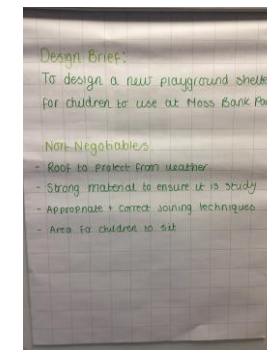 Design Brief:
To design a new playground shelte
for children to use at Moss Bank Pa
Non-Negotiables
- Roof to protect from weather
- Strong material to ensure it is study
- Appropriate + correct joining techniques
- Area for children to sit